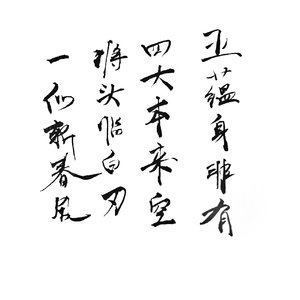 五蕴身非有
四大本来空
将头临白刃
一似斩春风